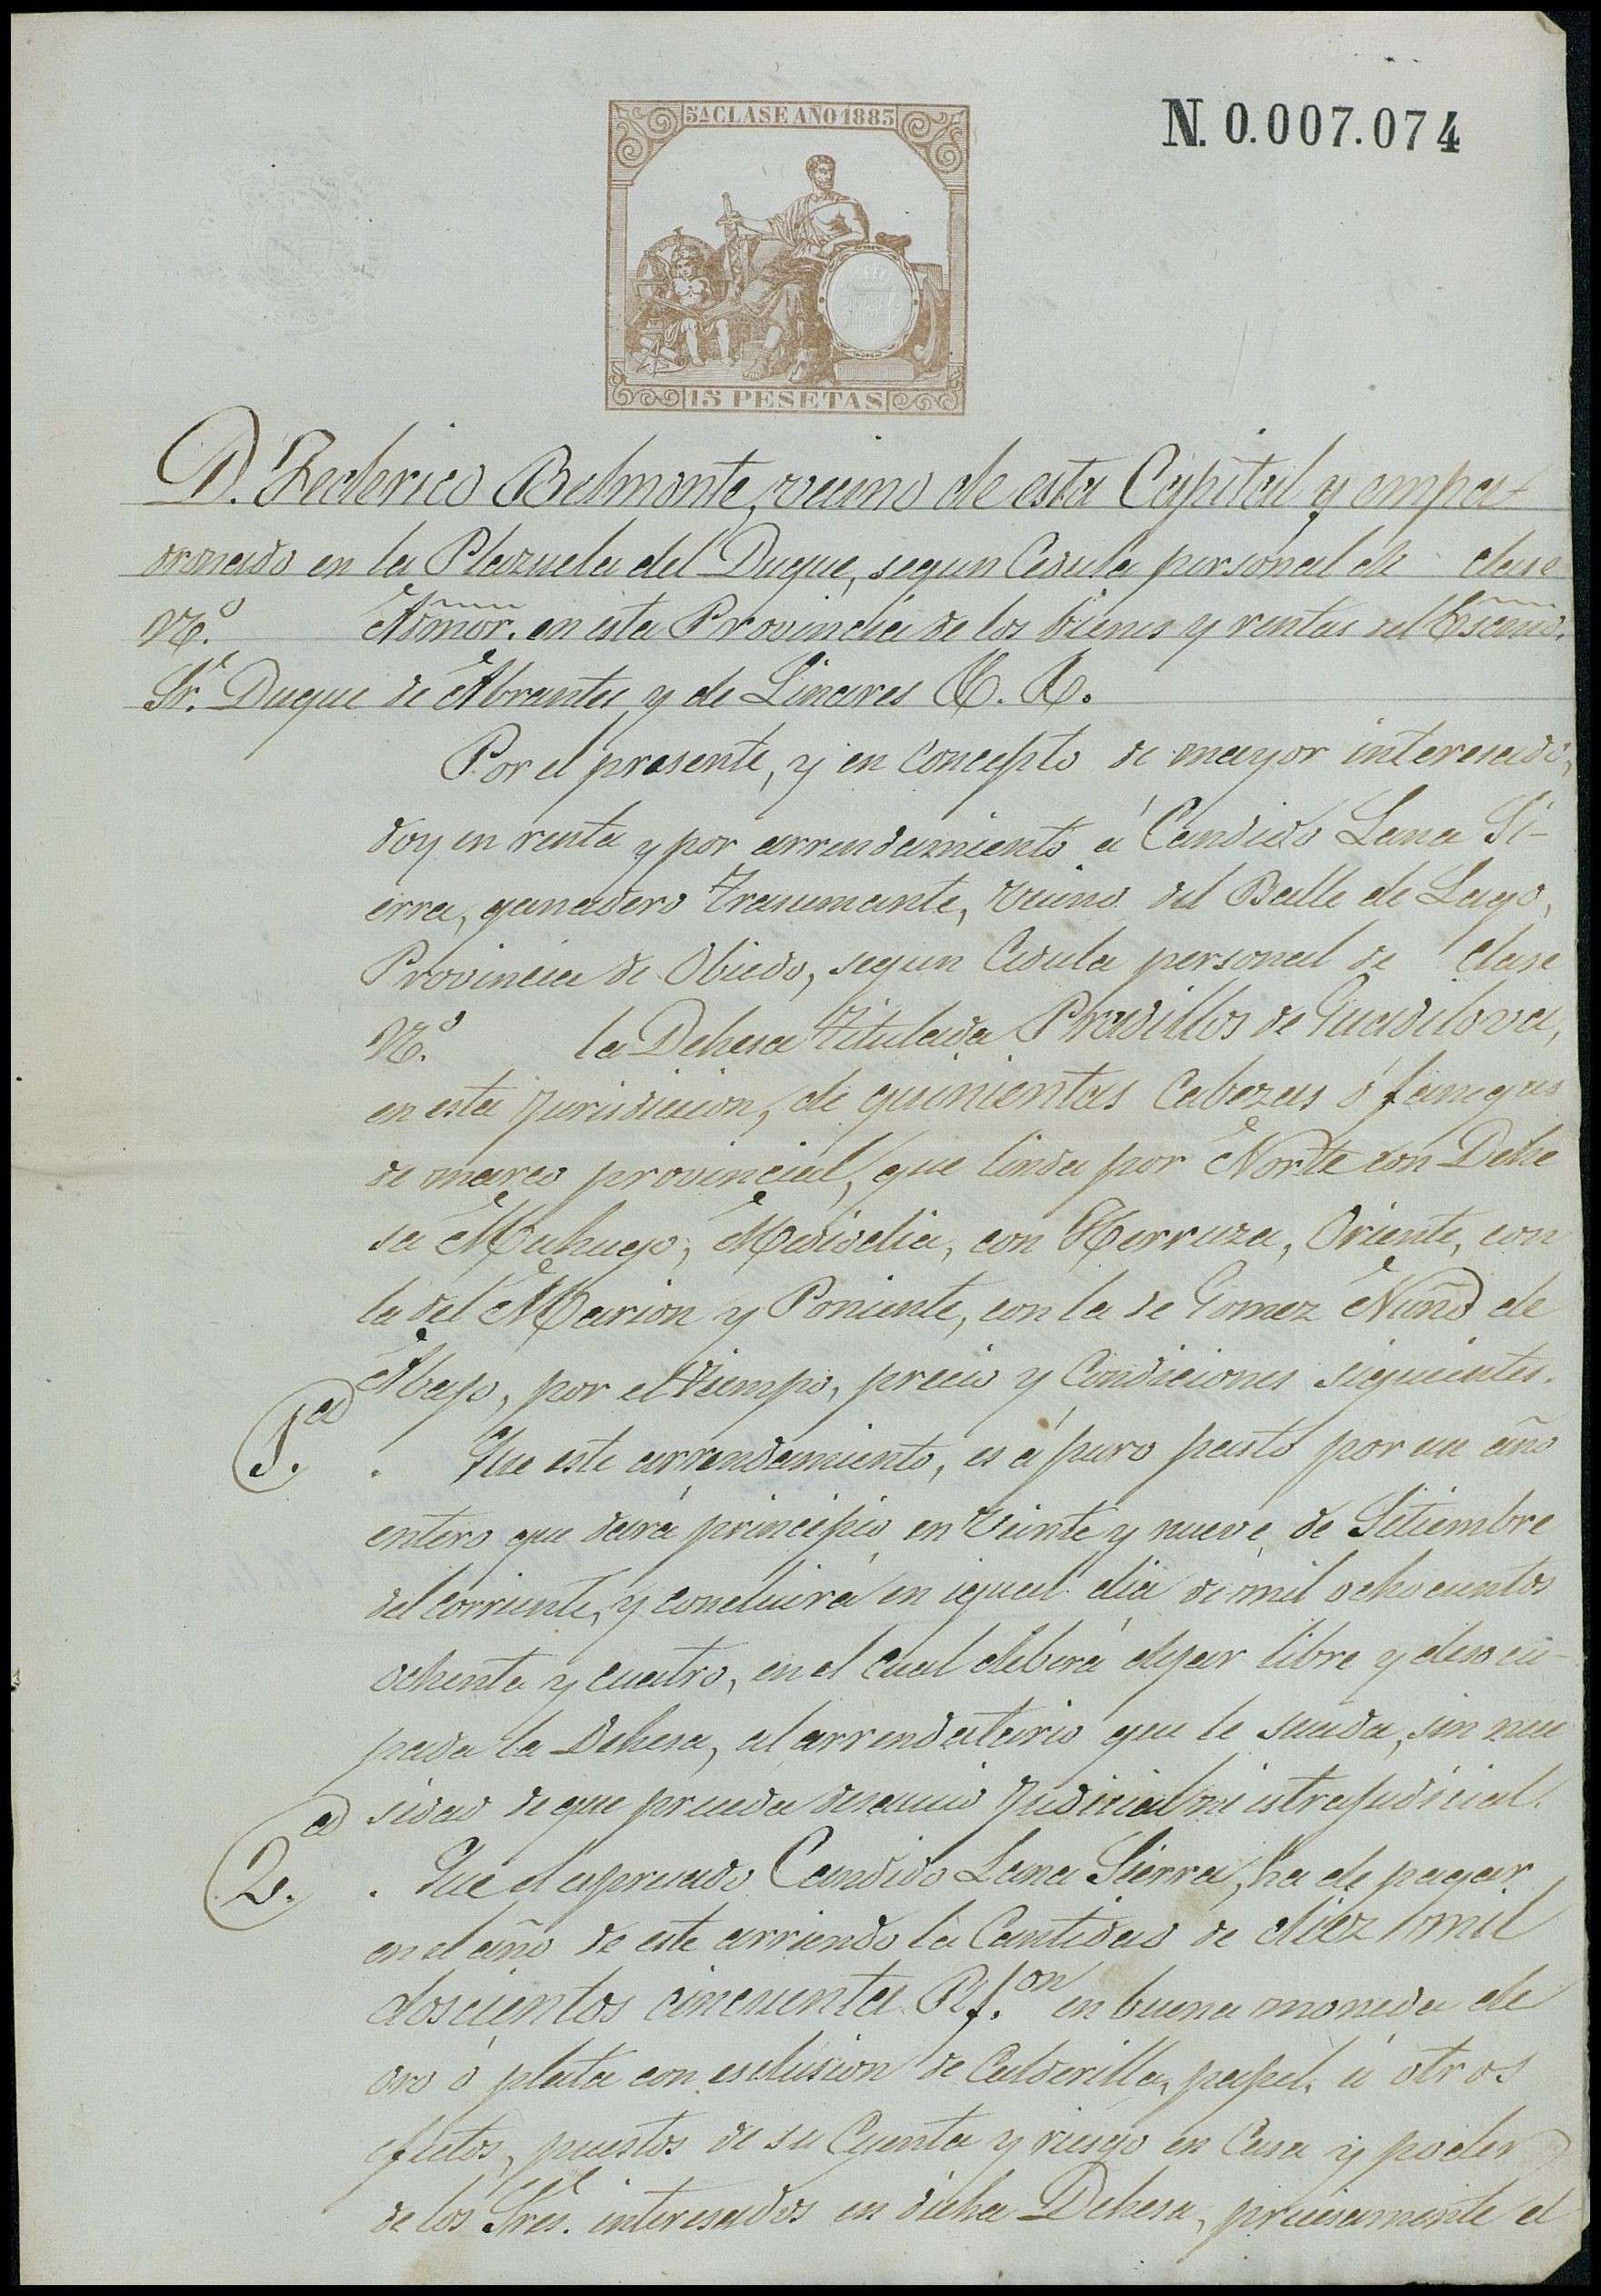 5ª CLASE AÑO 1883
N. 0.007.074
15 PESETAS
D. Federico Belmonte, vecino de esta Capital y empa-
dronado en la Plazuela del Duque, segun Cedula personal de clase
N.º Admor. en esta Provincia de los bienes y rentas del Escmo.
Sr. Duque de Abrantes y de Linares
Por el presente, y en concepto de mayor interesado,
doy en renta y por arrendamiento á Candido Lana Si-
erra, ganadero trasumante, vecino del Balle de Lago,
Provincia de Obiedo, segun Cedula personal de clase
N.º la Dehesa titulada Pradillos de Guadilova,
en esta jurisdicion, de quinientas Cabezas ó fanegas
de marco provincial, que linda por Norte con Dehe
sa Mahugo, Mediodia, con Herruza, Oriente, con
la del Marion y Poniente, con la de Gomez Nuño de
Abajo, por el tiempo, precio y Condiciones siguientes.
1.ª Que este arrendamiento, es á puro pasto por un año
entero que dará principio en veinte y nueve de Setiembre
del corriente, y concluirá en igual dia de mil ochocientos
ochenta y cuatro, en el cual deberá dejar libre y desocu-
pada la Dehesa, al arrendatario que le suceda, sin nece
sidad de que preceda desaucio judicial ni estrajudicial.
2.ª Que el espresado Candido Lana Sierra, ha de pagar
en el año de este arriendo la Cantidad de diez mil
doscientos cincuenta R.s on en buena moneda de
oro ó plata con esclusion de Calderilla, papel, ú otros
efectos, puestos de su Cuenta y riesgo en Casa y poder
de los Sres. interesados en dicha Dehesa, precisamente el